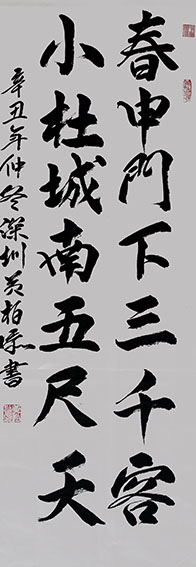 春申門下三千客
小杜城南五尺天
辛丑年仲冬深圳黄柏霖書